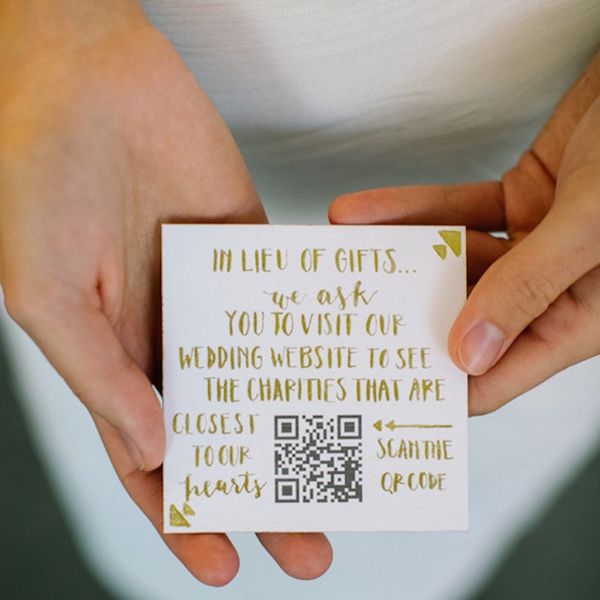 IN LIEU OF GIFTS...
we ask
YOU TO VISIT OUR
WEDDING WEBSITE TO SEE
THE CHARITIES THAT ARE
CLOSEST
TO OUR
hearts
SCAN THE
QR CODE